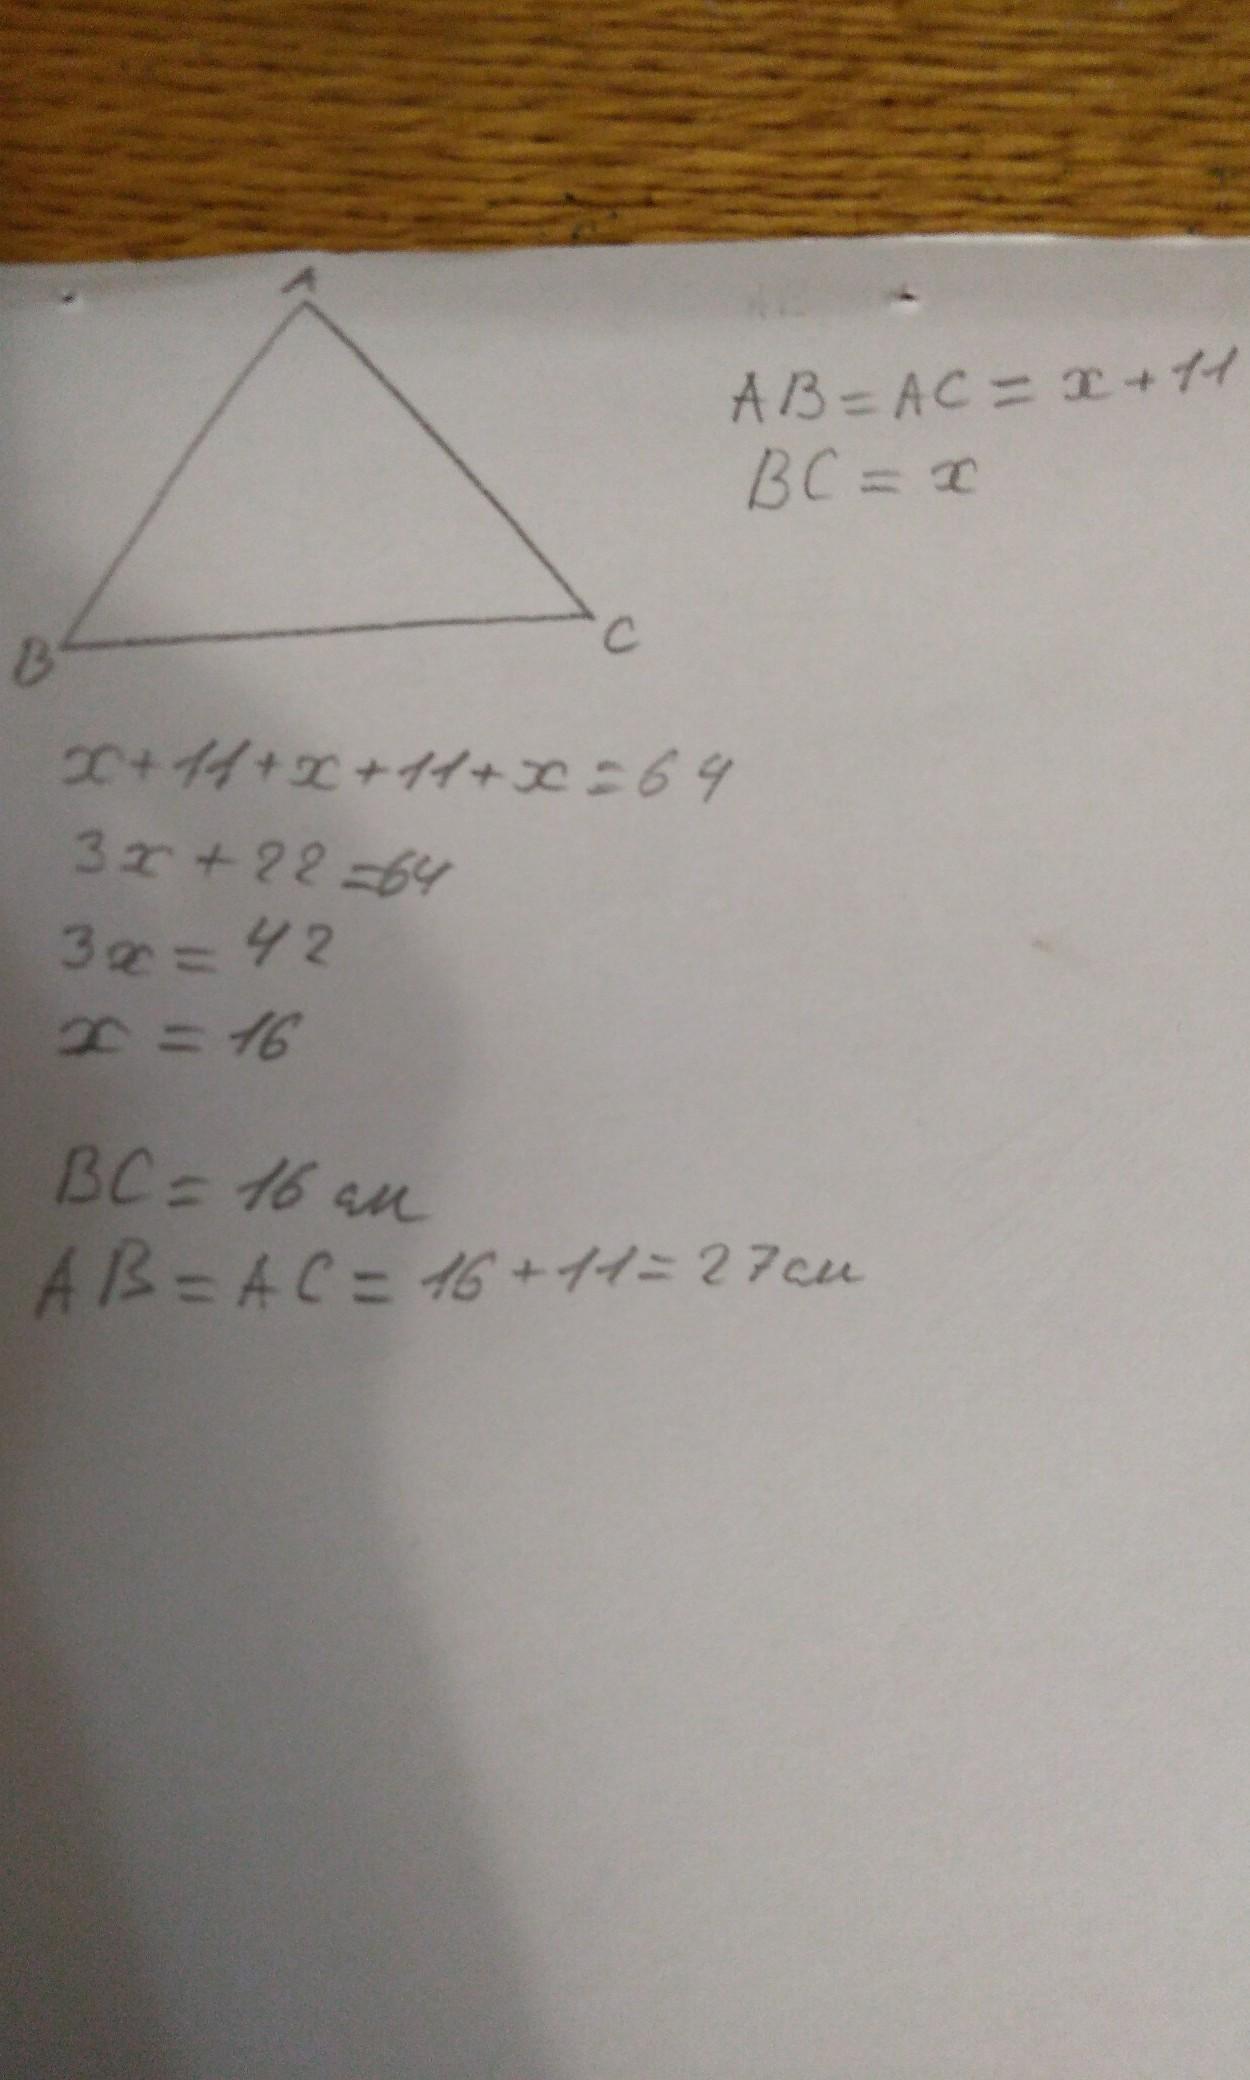 A
AB = AC = x + 11
BC = x
B
C
x + 11 + x + 11 + x = 64
3x + 22 = 64
3x = 42
x = 16
BC = 16 см
AB = AC = 16 + 11 = 27 см